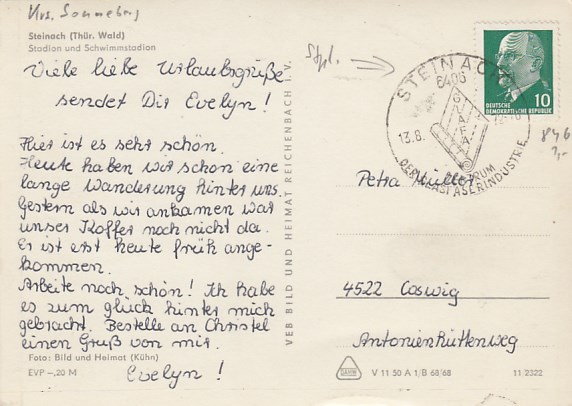 Krs. Sonneberg
Steinach (Thür. Wald)
Stadion und Schwimmstadion
Viele liebe Urlaubsgrüße
sendet Dir Evelyn!
Hier ist es sehr schön.
Heute haben wir schon eine
lange Wanderung hinter uns.
Gestern als wir ankamen war
unser Koffer noch nicht da.
Er ist erst heute früh ange-
kommen.
Arbeite noch schön! Ich habe
es zum glück hinter mich
gebracht. Bestelle an Christel
einen Gruß von mir.
Evelyn!
Foto: Bild und Heimat (Kühn)
EVP -,20 M
VEB BILD UND HEIMAT REICHENBACH I. V.
Stpl.
STEINACH
6406
13.8.
GLAFA
ZENTRUM
DER GLASFASERINDUSTRIE
DEUTSCHE
DEMOKRATISCHE REPUBLIK
10
846
Petra Müller
4522 Coswig
Antonienhüttenweg
V 11 50 A 1/B 68/68
11 2322